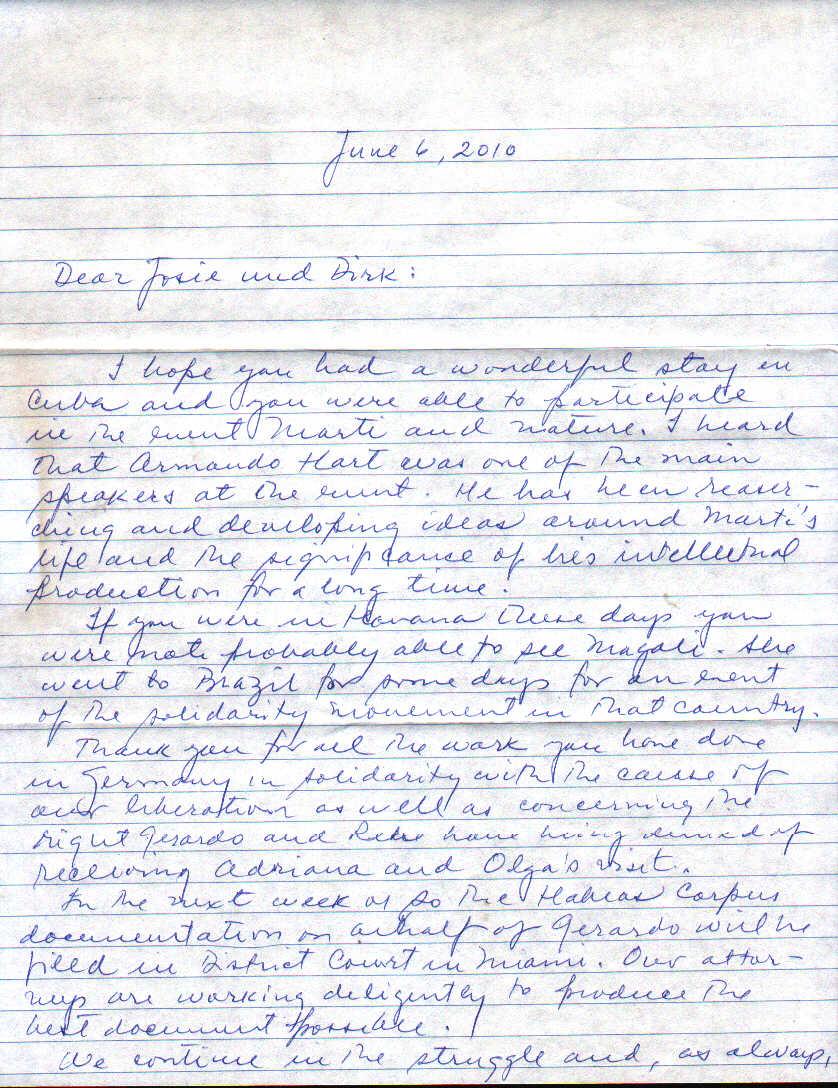 June 6, 2010
Dear Josie und Dirk:
I hope you had a wonderful stay in
Cuba and you were able to participate
in the event Marti and nature. I heard
that Armando Hart was one of the main
speakers at the event. He has been reaser-
ching and developing ideas around Marti's
life and the significance of his intellectual
production for a long time.
If you were in Havana these days you
were not probably able to see Magali. She
went to Brazil for some days for an event
of the solidarity movement in that country.
Thank you for all the work you have done
in Germany in solidarity with the cause of
our liberation as well as concerning the
right Gerardo and Rene have being denied of
receiving Adriana and Olga's visit.
In the next week or so the Habeas Corpus
documentation on behalf of Gerardo will be
filed in District Court in Miami. Our attor-
neys are working deligently to produce the
best document possible.
We continue in the struggle and, as always,